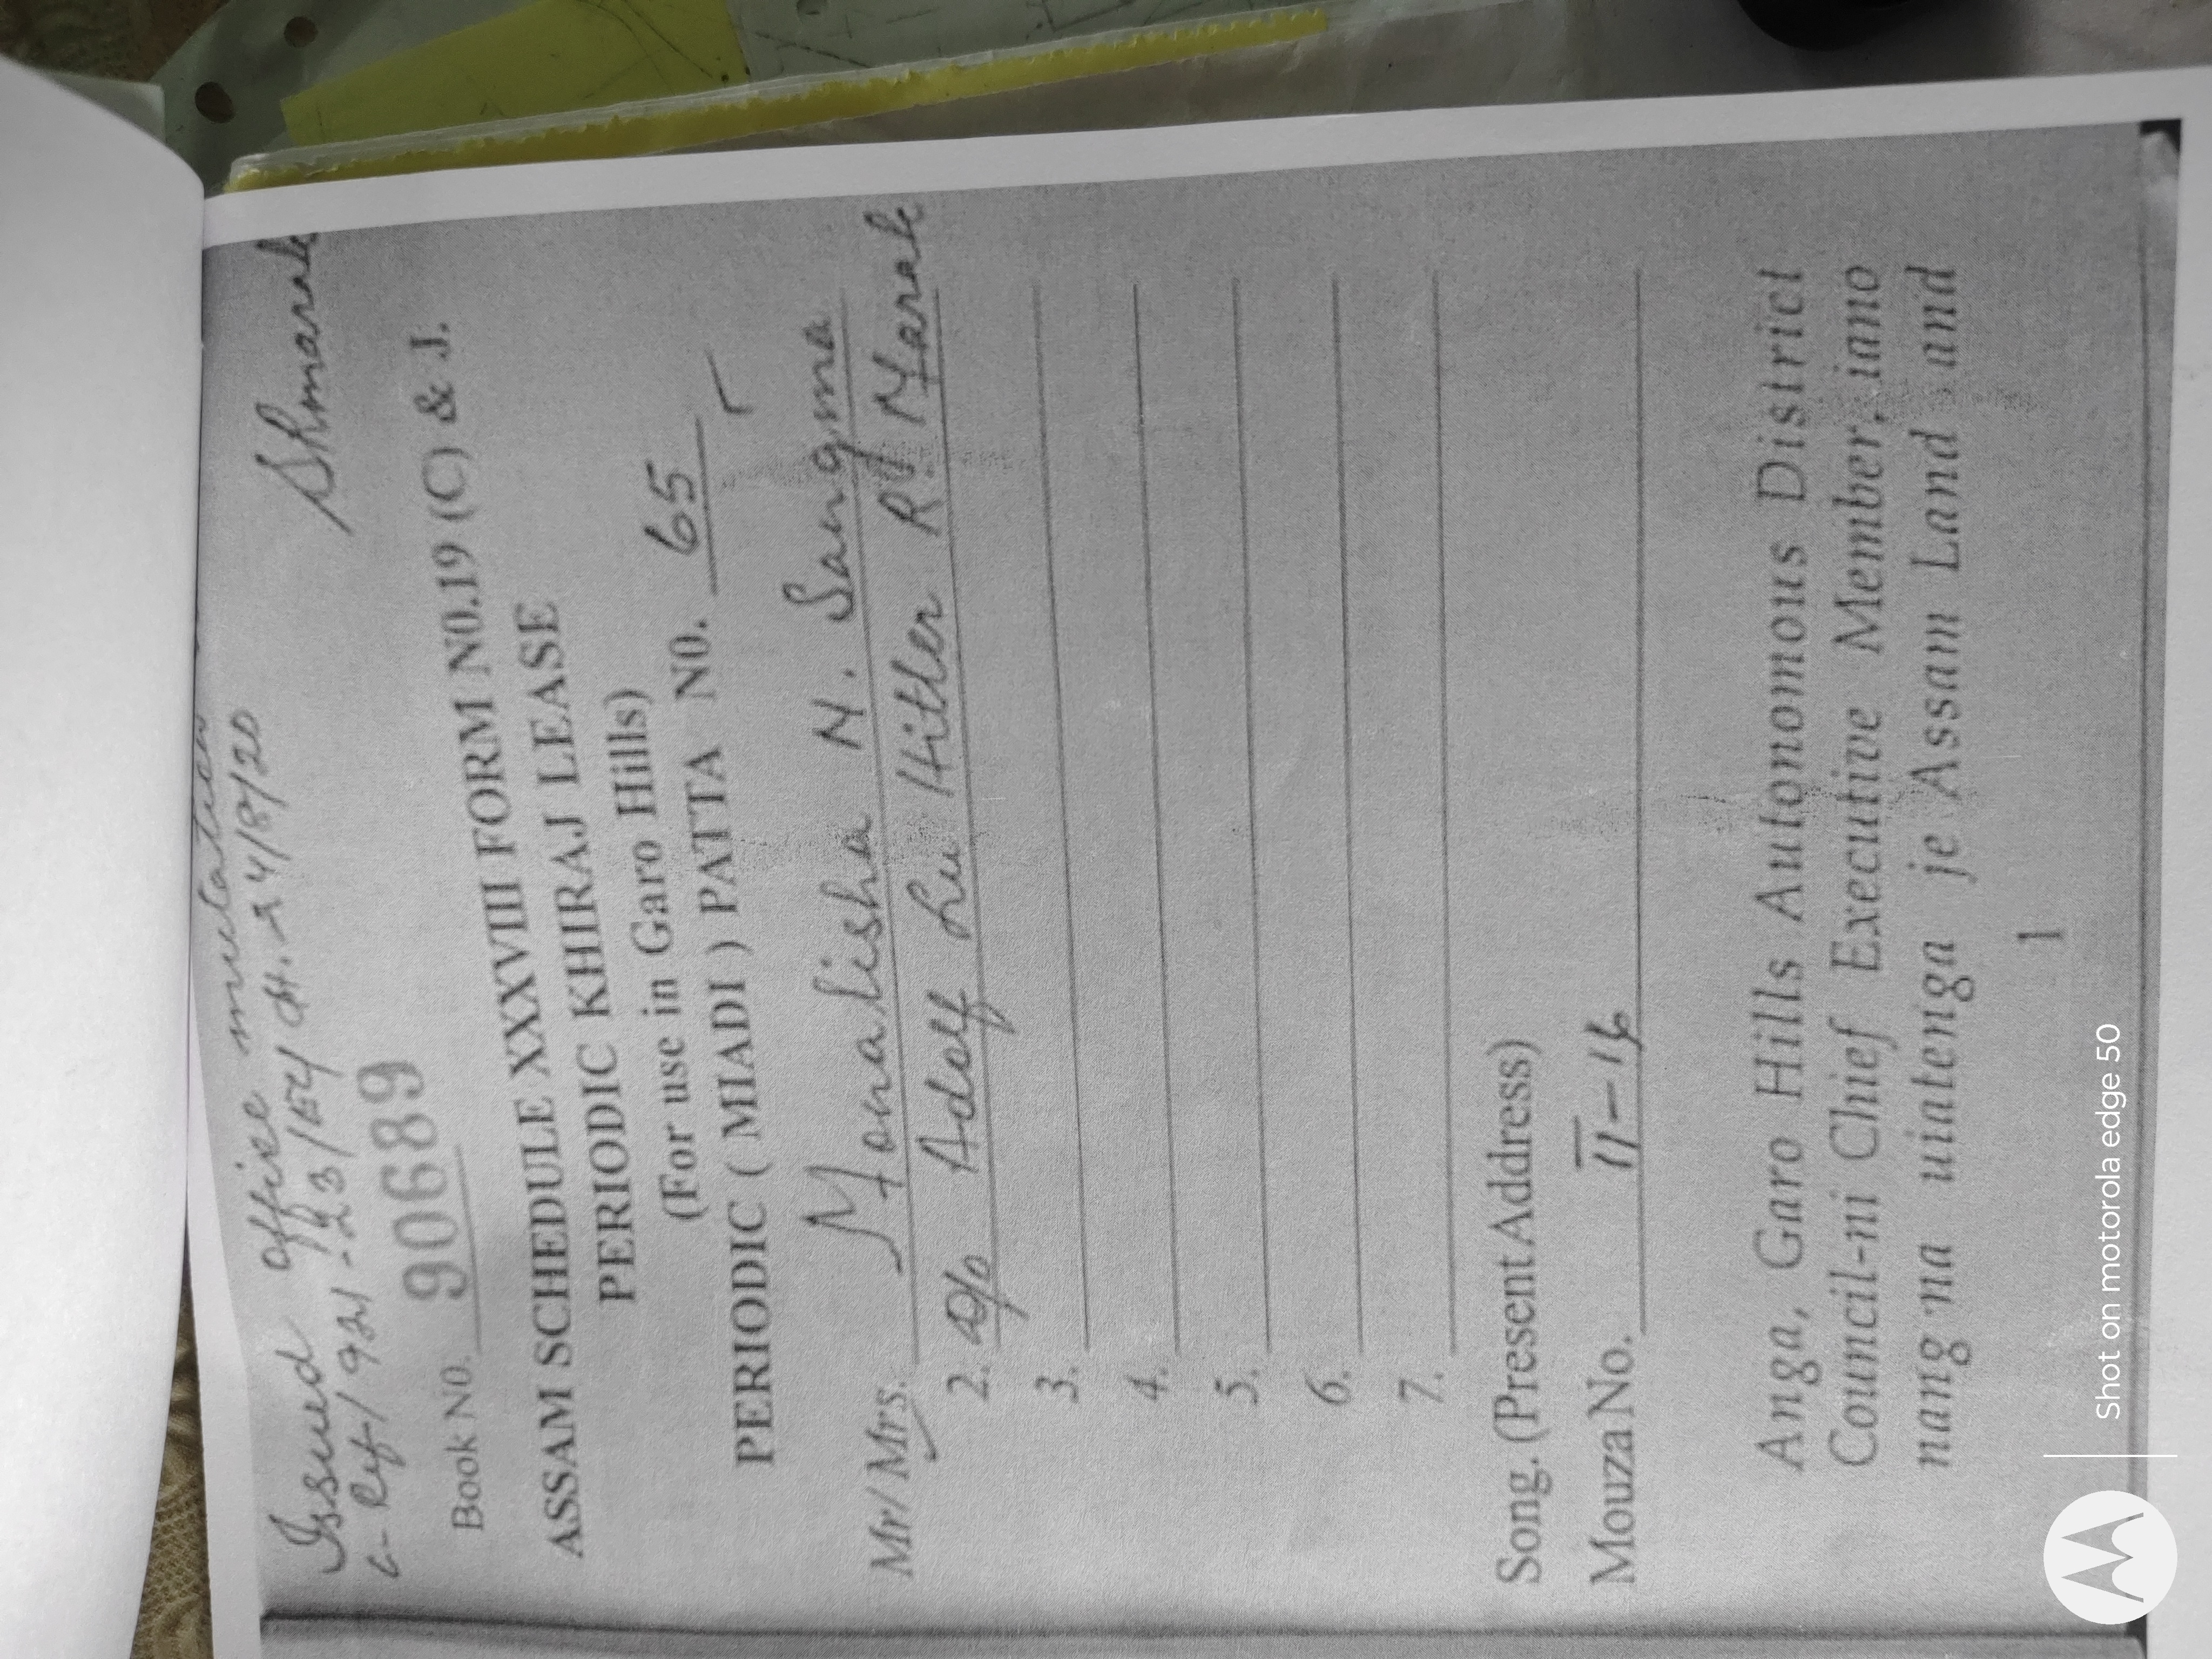 Issued office mutation
Book N0. 90689
Shmarak
ASSAM SCHEDULE XXXVIII FORM N0.19 (C) & J.
PERIODIC KHIRAJ LEASE
(For use in Garo Hills)
PERIODIC ( MIADI ) PATTA N0. 65
Mr/ Mrs. Monalisha N. Sangma
2. D/o Adolf Lu Hitler R. Marak
3.
4.
5.
6.
7.
Song. (Present Address)
Mouza No. II-16
Anga, Garo Hills Autonomous District
Council-ni Chief Executive Member, iano
nang'na uiatenga je Assam Land and
1
Shot on motorola edge 50